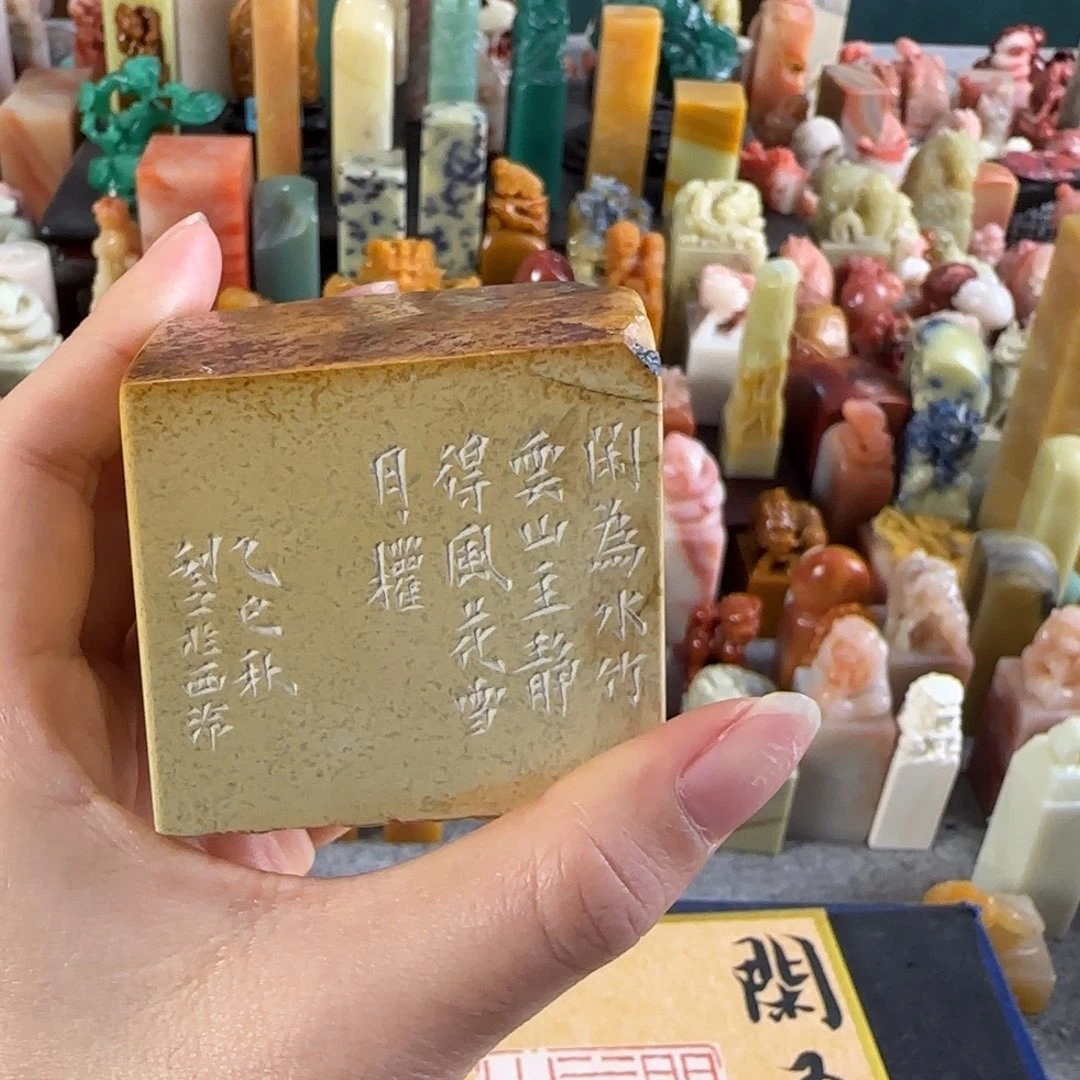 閑為水竹
雲山主靜
得風花雪
月權
乙巳秋
刻于西泠
閑